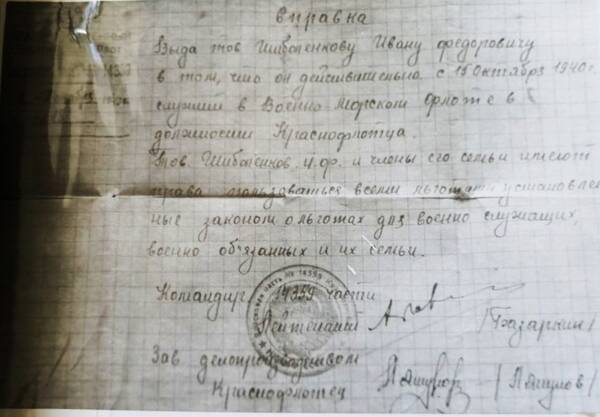 Справка
Выда тов Шибаленкову Ивану Федоровичу
в том, что он действительно с 15 Октября 1940г.
служит в Военно Морском Флоте в
должности Краснофлотца.
Тов. И.Ф. и члены его семьи имеют
права пользоваться всеми льготами установлен
ные законом о льготах для военно служащих,
военно обязанных и их семьи.
Командир 14359 части
Лейтенант
Зав. делопроизводством
Краснофлотец